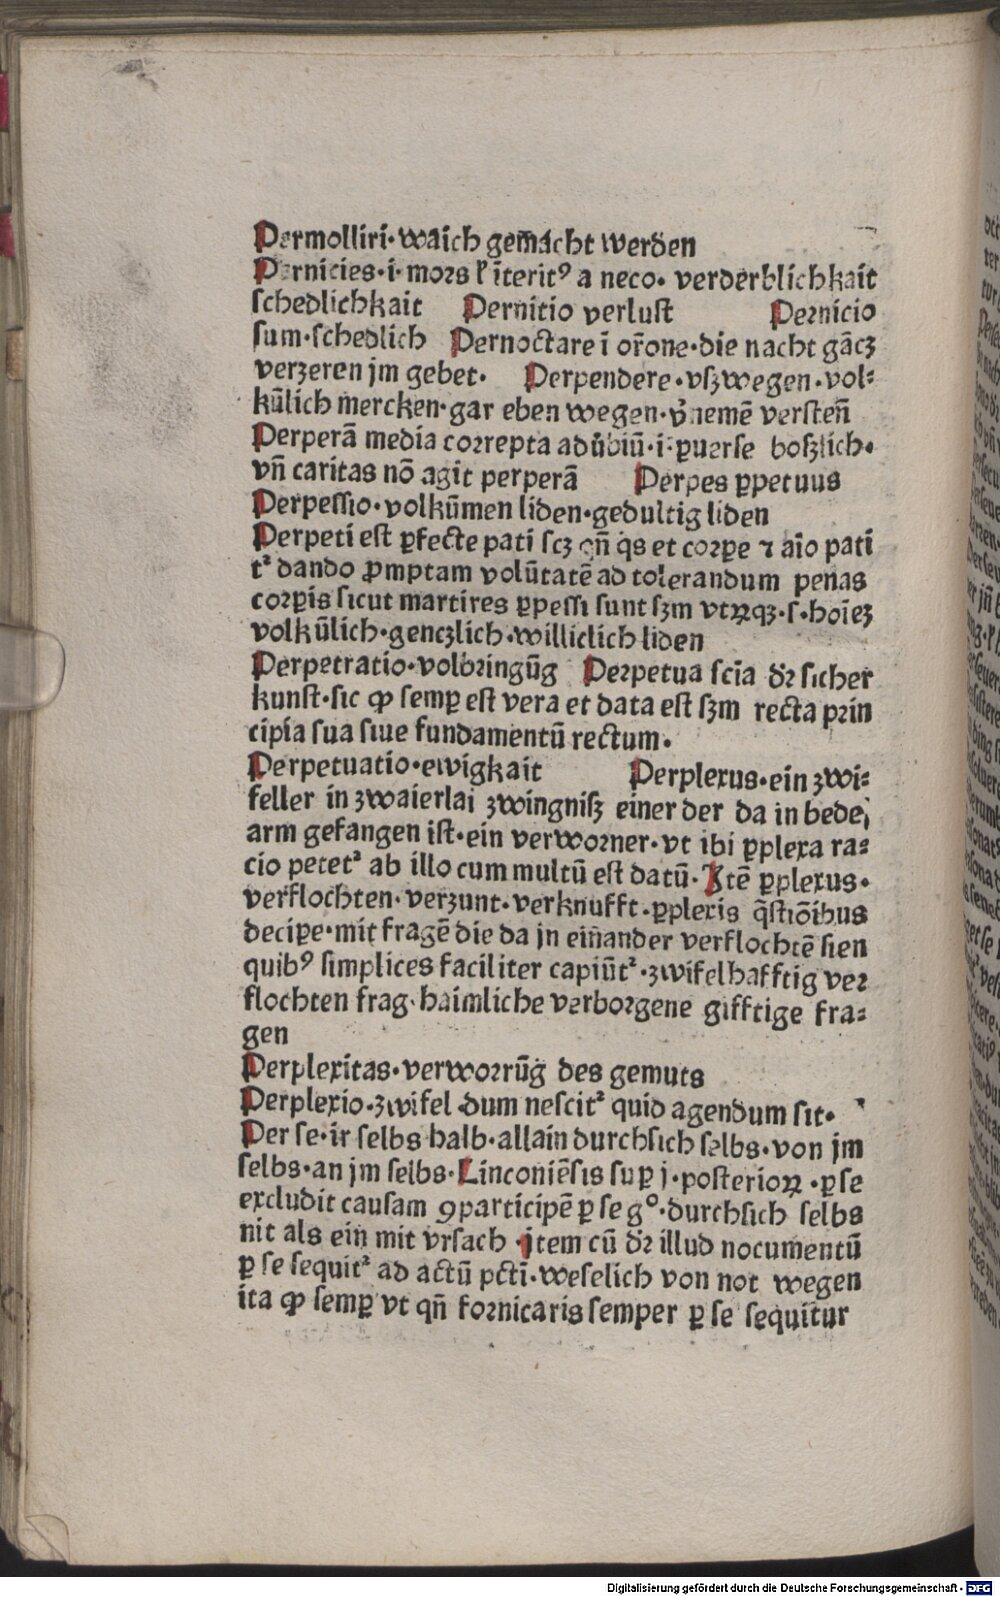 Permolliri·waich gemacht werden
Pernicies·i·mors ł īteritꝰ a neco· verderblichkait
schedlichkait Pernitio verlust Pernicio
sum·schedlich Pernoctare ī or̄one·die nacht gācʒ
verʒeren jm gebet· Perpendere·vsʒwegen·vol⸗
kūlich mercken·gar eben wegen·v̓nemē versten̄
Perperā media correpta adūbiū·i·ꝑuerse bosʒlich·
vn̄ caritas nō agit perperā Perpes ꝑpetuus
Perpessio·volkūmen liden·gedultig liden
Perpeti est ꝑfecte pati scʒ qn̄ q̄s et corꝑe ⁊ aīo pati
tᷣ dando ꝓmptam volūtatē ad tolerandum penas
corꝑis sicut martires ꝑpessi sunt sʒm vtrꝝqʒ·s·hoīeʒ
volkūlich·gencʒlich·williclich liden
Perpetratio·volbringūg Perpetua scīa dr̄ sicher
kunst·sic ꝙ semꝑ est vera et data est sʒm recta prin
cipia sua siue fundamentū rectum·
Perpetuatio·ewigkait Perplexus·ein ʒwi⸗
feller in ʒwaierlai ʒwingnisʒ einer der da in bede
arm gefangen ist·ein verworner·vt ibi ꝑplexa ra⸗
cio petetᷣ ab illo cum multū est datū·Jtē ꝑplexus·
verflochten·verʒunt·verknufft·ꝑplexis q̄stiōibus
deciꝑe·mit fragē die da jn einander verflochtē sien
quibꝰ simplices faciliter capiūtᷣ·ʒwifelhafftig ver
flochten frag·haimliche verborgene gifftige fra⸗
gen
Perplexitas·verworrūg des gemuts
Perplexio·ʒwifel dum nescitᷣ quid agendum sit·
Per se·ir selbs halb·allain durchsich selbs·von jm
selbs·an jm selbs·Linconiēsis suꝑ j·posterioꝝ·ꝑ se
excludit causam ꝯparticipē ꝑ se g°·durchsich selbs
nit als ein mit vrsach·jtem cū dr̄ illud nocumentū
ꝑ se sequitᷣ ad actū pctī·weselich von not wegen
ita ꝙ semꝑ vt qn̄ fornicaris semper ꝑ se sequitur
Digitalisierung gefördert durch die Deutsche Forschungsgemeinschaft - DFG